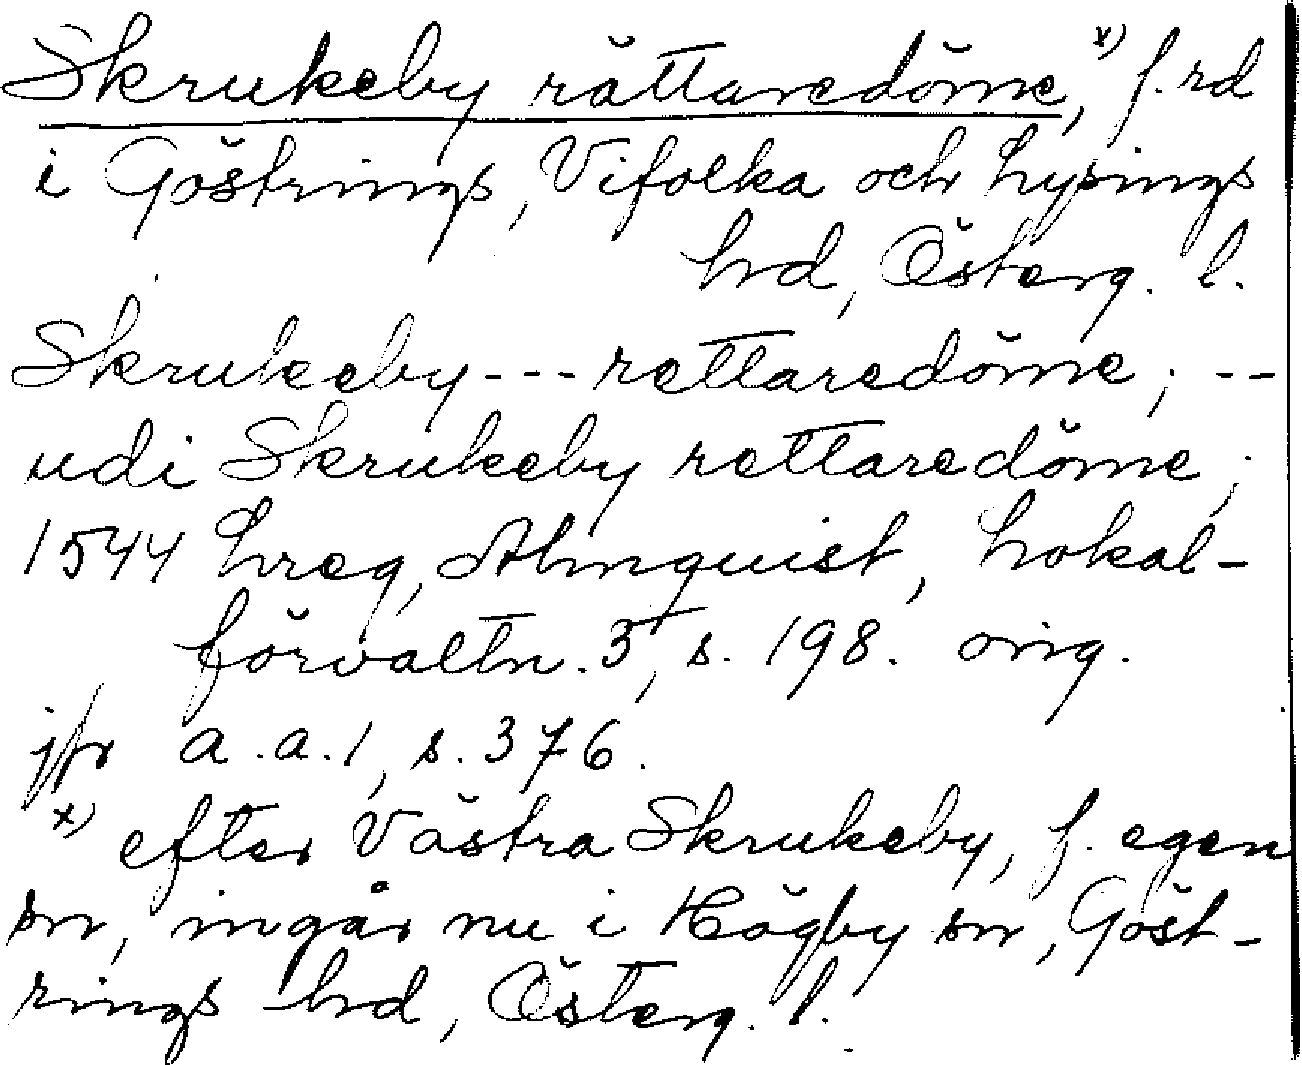 Skrukeby rättaredöme,ˣ⁾ f.rd
i Göstrings, Vifolka och Lysings
hrd, Österg. l.
Skrukeby --- rettaredöme; --
udi Skrukeby rettaredöme;
1544 Lreg, Almquist, Lokal-
förvaltn. 3, s. 198. orig.
jfr a.a.1, s. 376.
ˣ⁾ efter Västra Skrukeby, f. egen
sn, ingår nu i Högby sn, Göst-
rings hrd, Österg. l.